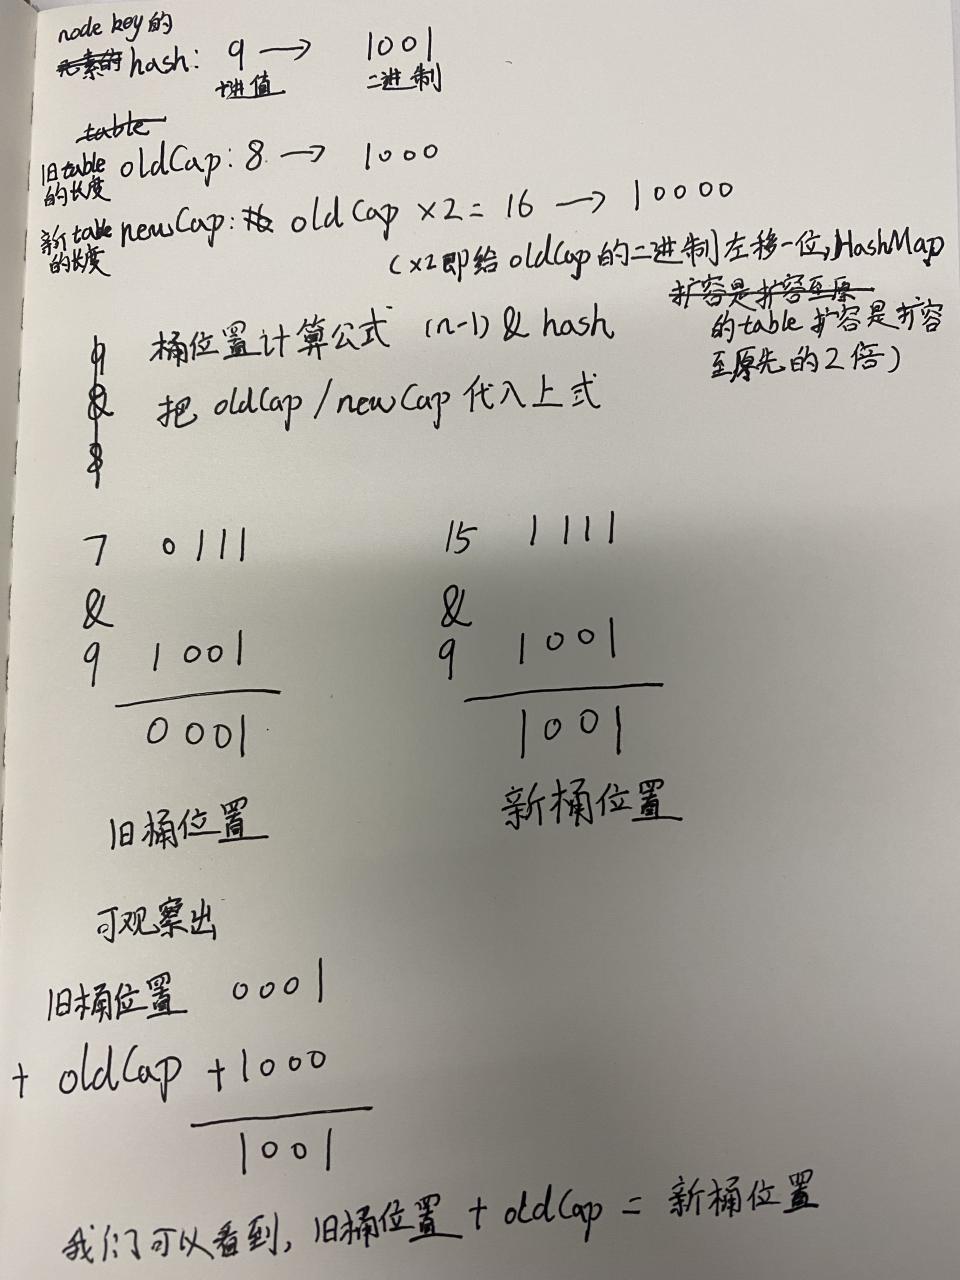 node key的
元素的 hash: 9 → 1001
十进值 二进制
table
旧table的长度 oldCap: 8 → 1000
新table的长度 newCap: 16 oldCap ×2 = 16 → 10000
(×2即给oldCap的二进制左移一位,HashMap
扩容是扩容至原
的table扩容是扩容
至原先的2倍)
9
&
8
桶位置计算公式 (n-1) & hash
把 oldCap / newCap 代入上式
7 0111
&
9 1001
0001
旧桶位置
15 1111
&
9 1001
1001
新桶位置
可观察出
旧桶位置 0001
+ oldCap +1000
1001
我们可以看到, 旧桶位置 + oldCap = 新桶位置